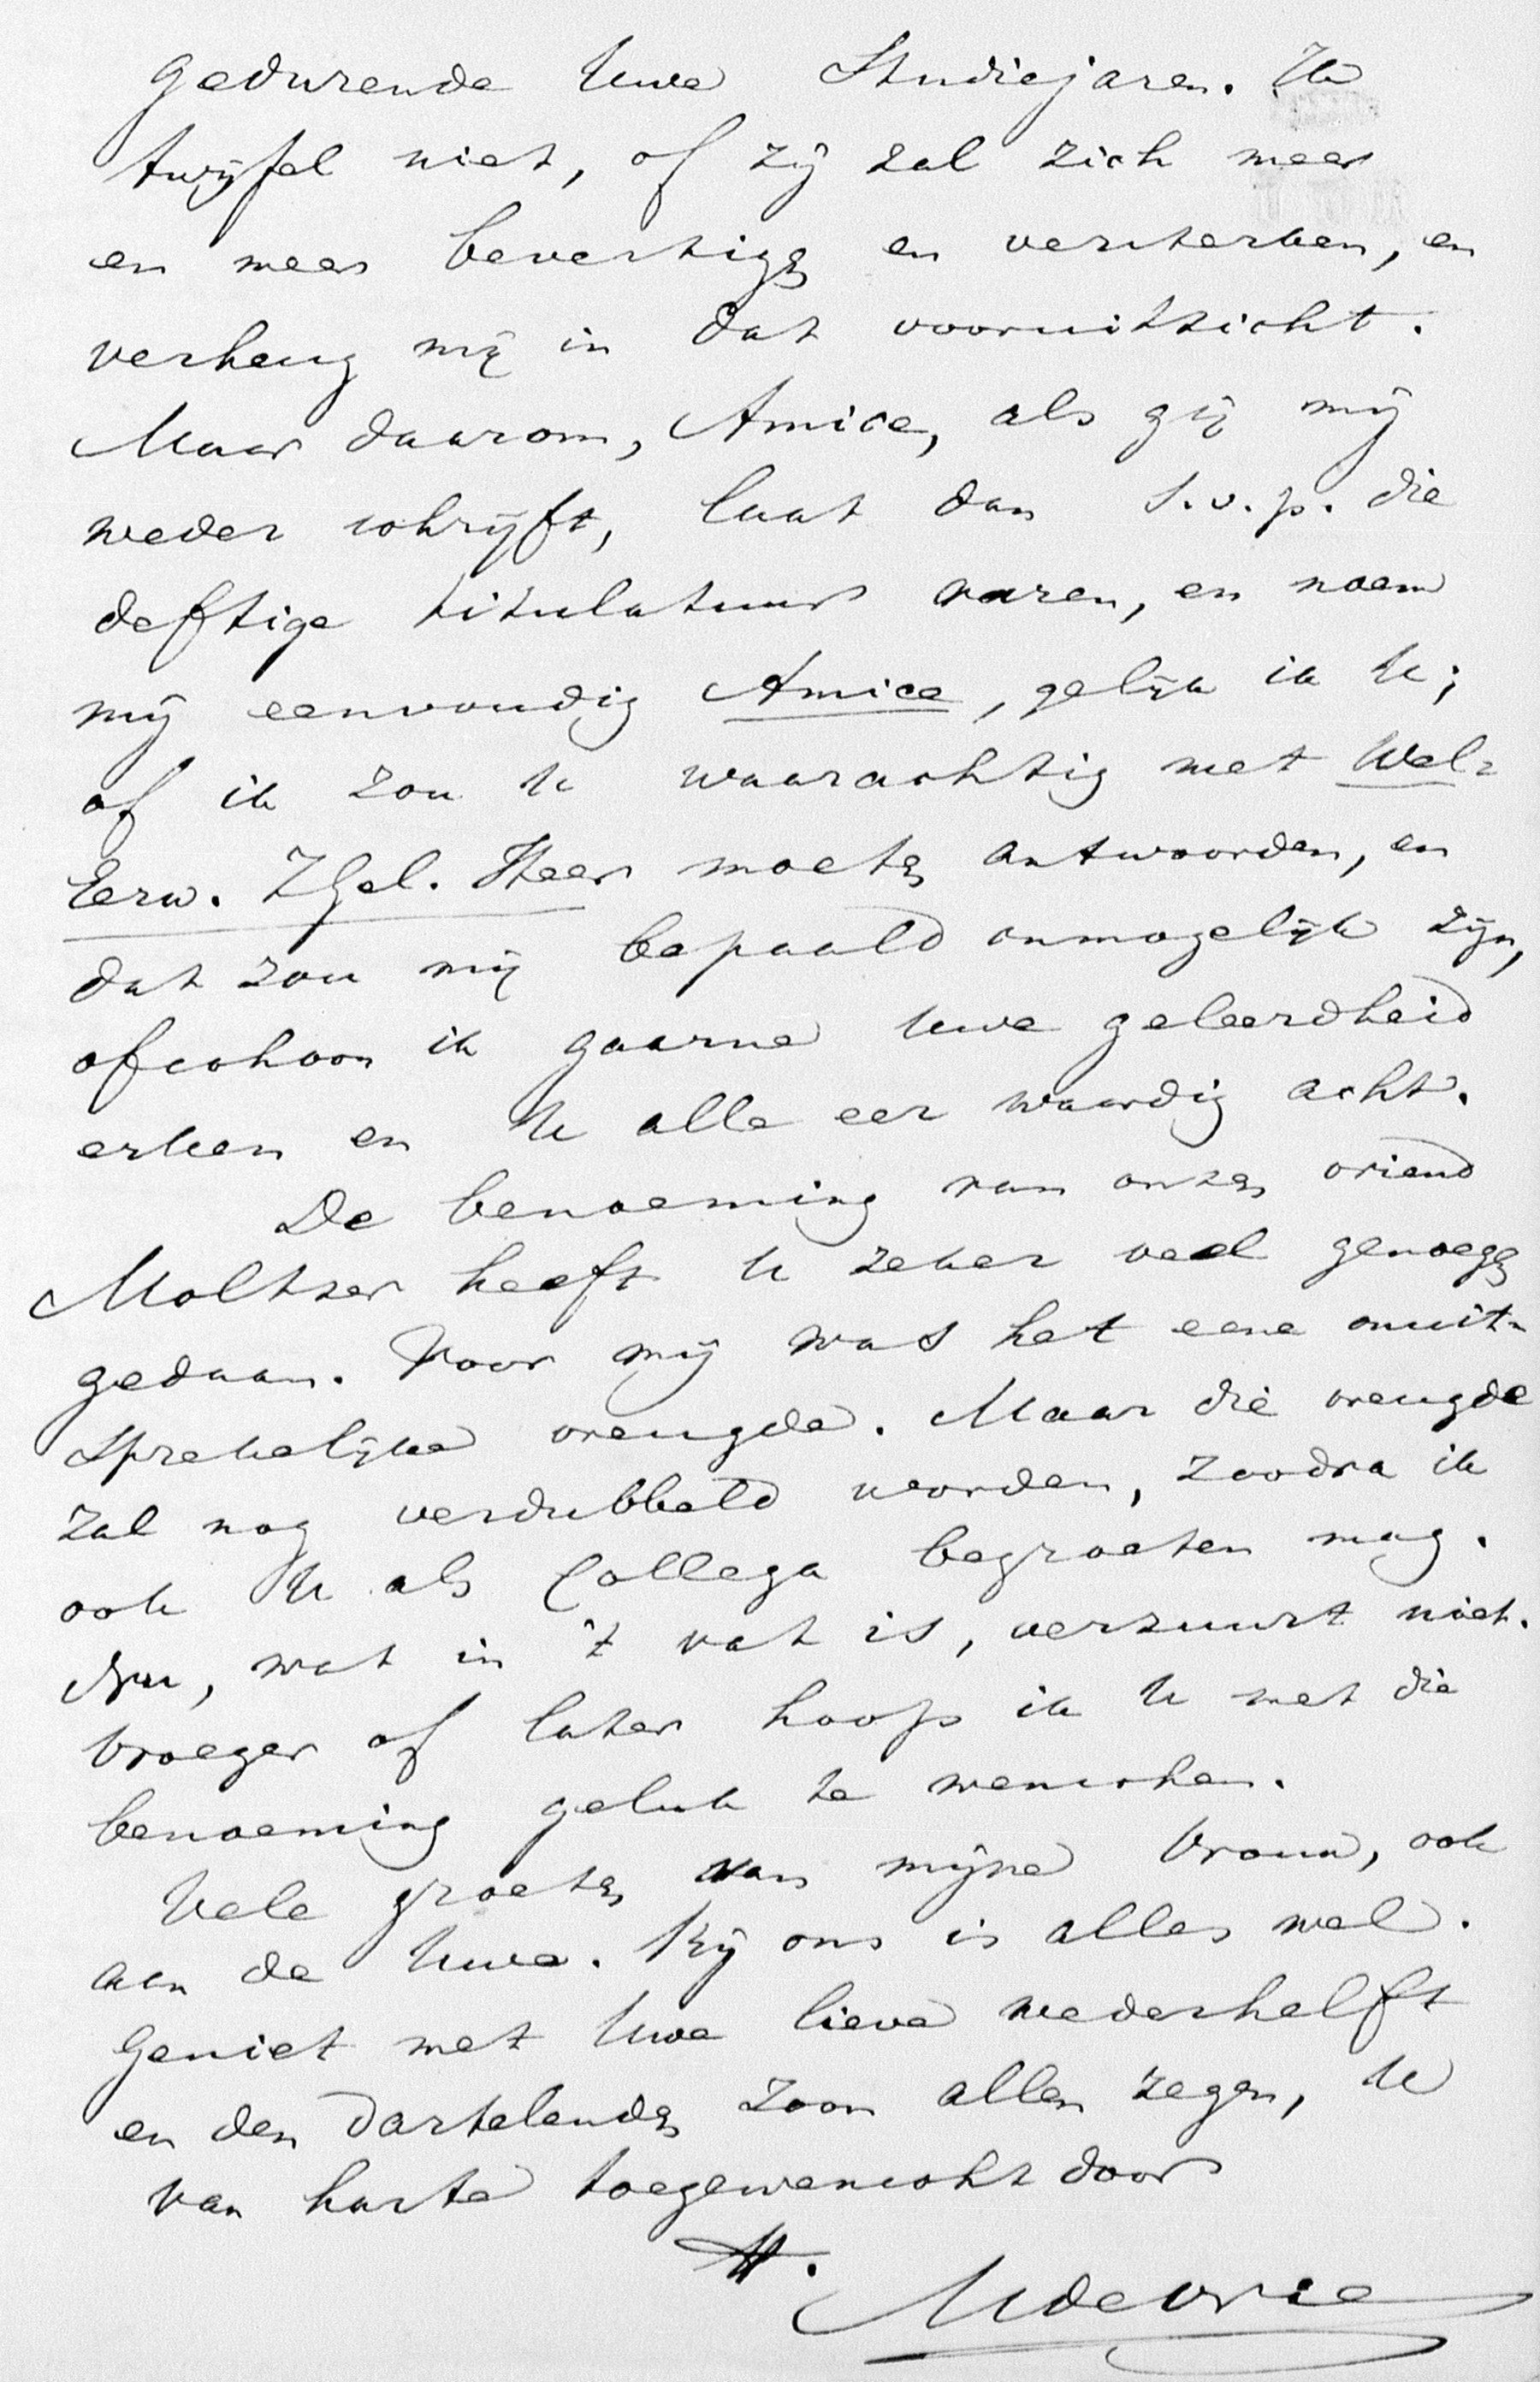 gedurende Uwe Studiejaren. Ik
twijfel niet, of zij zal zich meer
en meer bevestigen en versterken, en
verheug mij in dat vooruitzicht.
Maar daarom, Amice, als gij mij
weder schrijft, laat dan s.v.p. die
deftige titulatuur varen, en noem
mij eenvoudig Amice, gelijk ik U;
of ik zou U waarachtig met Wel-
Eerw. ZGel. Heer moeten antwoorden, en
dat zou mij bepaald onmogelijk zijn,
ofschoon ik gaarne Uwe geleerdheid
erken en U alle eer waardig acht.
De benoeming van onzen vriend
Moltzer heeft U zeker veel genoegen
gedaan. Voor mij was het eene onuit-
sprekelijke vreugde. Maar die vreugde
zal nog verdubbeld worden, zoodra ik
ook U als Collega begroeten mag.
Nu, wat in 't vat is, verzuurt niet.
Vroeger of later hoop ik U met die
benoeming geluk te wenschen.
Vele groeten van mijne Vrouw, ook
aan de Uwe. Bij ons is alles wel.
Geniet met Uwe lieve wederhelft
en den dartelenden zoon allen zegen, U
van harte toegewenscht door
tt.
MdeVries